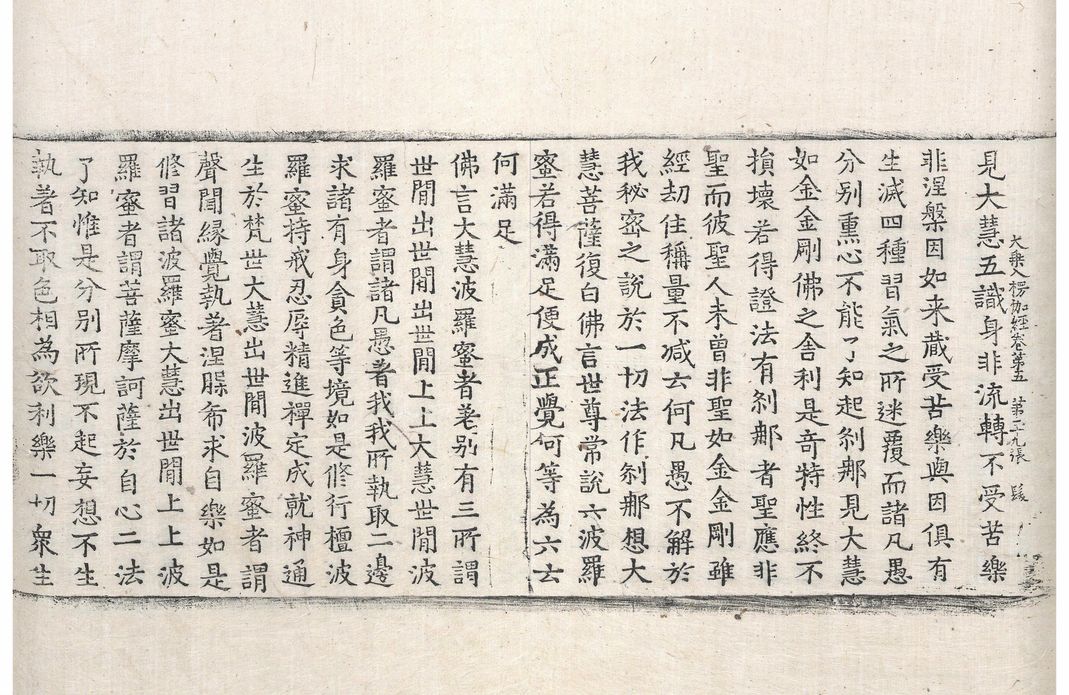 大乘入楞伽經卷第五 第十九張
見大慧五識身非流轉不受苦樂
非涅槃因如来蔵受苦樂與因俱有
生滅四種習氣之所迷覆而諸凡愚
分別熏心不能了知起剎那見大慧
如金金剛佛之舍利是竒特性終不
損壞若得證法有剎那者聖應非
聖而彼聖人未曾非聖如金金剛雖
經劫住稱量不減云何凡愚不解於
我秘密之說於一切法作剎那想大
慧菩薩復白佛言世尊常說六波羅
蜜若得滿足便成正覺何等為六云
何滿足
佛言大慧波羅蜜者差別有三所謂
世閒出世閒出世閒上上大慧世閒波
羅蜜者謂諸凡愚著我我所執取二邊
求諸有身貪色等境如是修行檀波
羅蜜持戒忍辱精進禪定成就神通
生於梵世大慧出世閒波羅蜜者謂
聲聞緣覺執著涅槃希求自樂如是
修習諸波羅蜜大慧出世閒上上波
羅蜜者謂菩薩摩訶薩於自心二法
了知惟是分別所現不起妄想不生
執著不取色相為欲利樂一切衆生